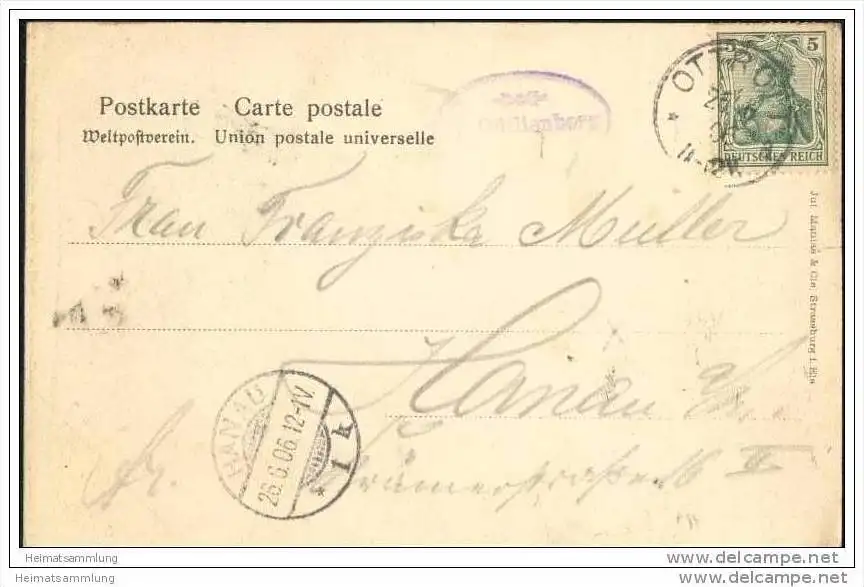 5
OTTROTT
DEUTSCHES REICH
Postkarte Carte postale
Weltpostverein. Union postale universelle
Frau Franziska Müller
Hanau a/M.
Krämerstraße 16 II
HANAU
26.6.06.12-1V.
* 1 k
Jul. Manias & Cie. Strassburg i. Els
Heimatsammlung
Heimatsammlung
www.delcampe.net
www.delcampe.net